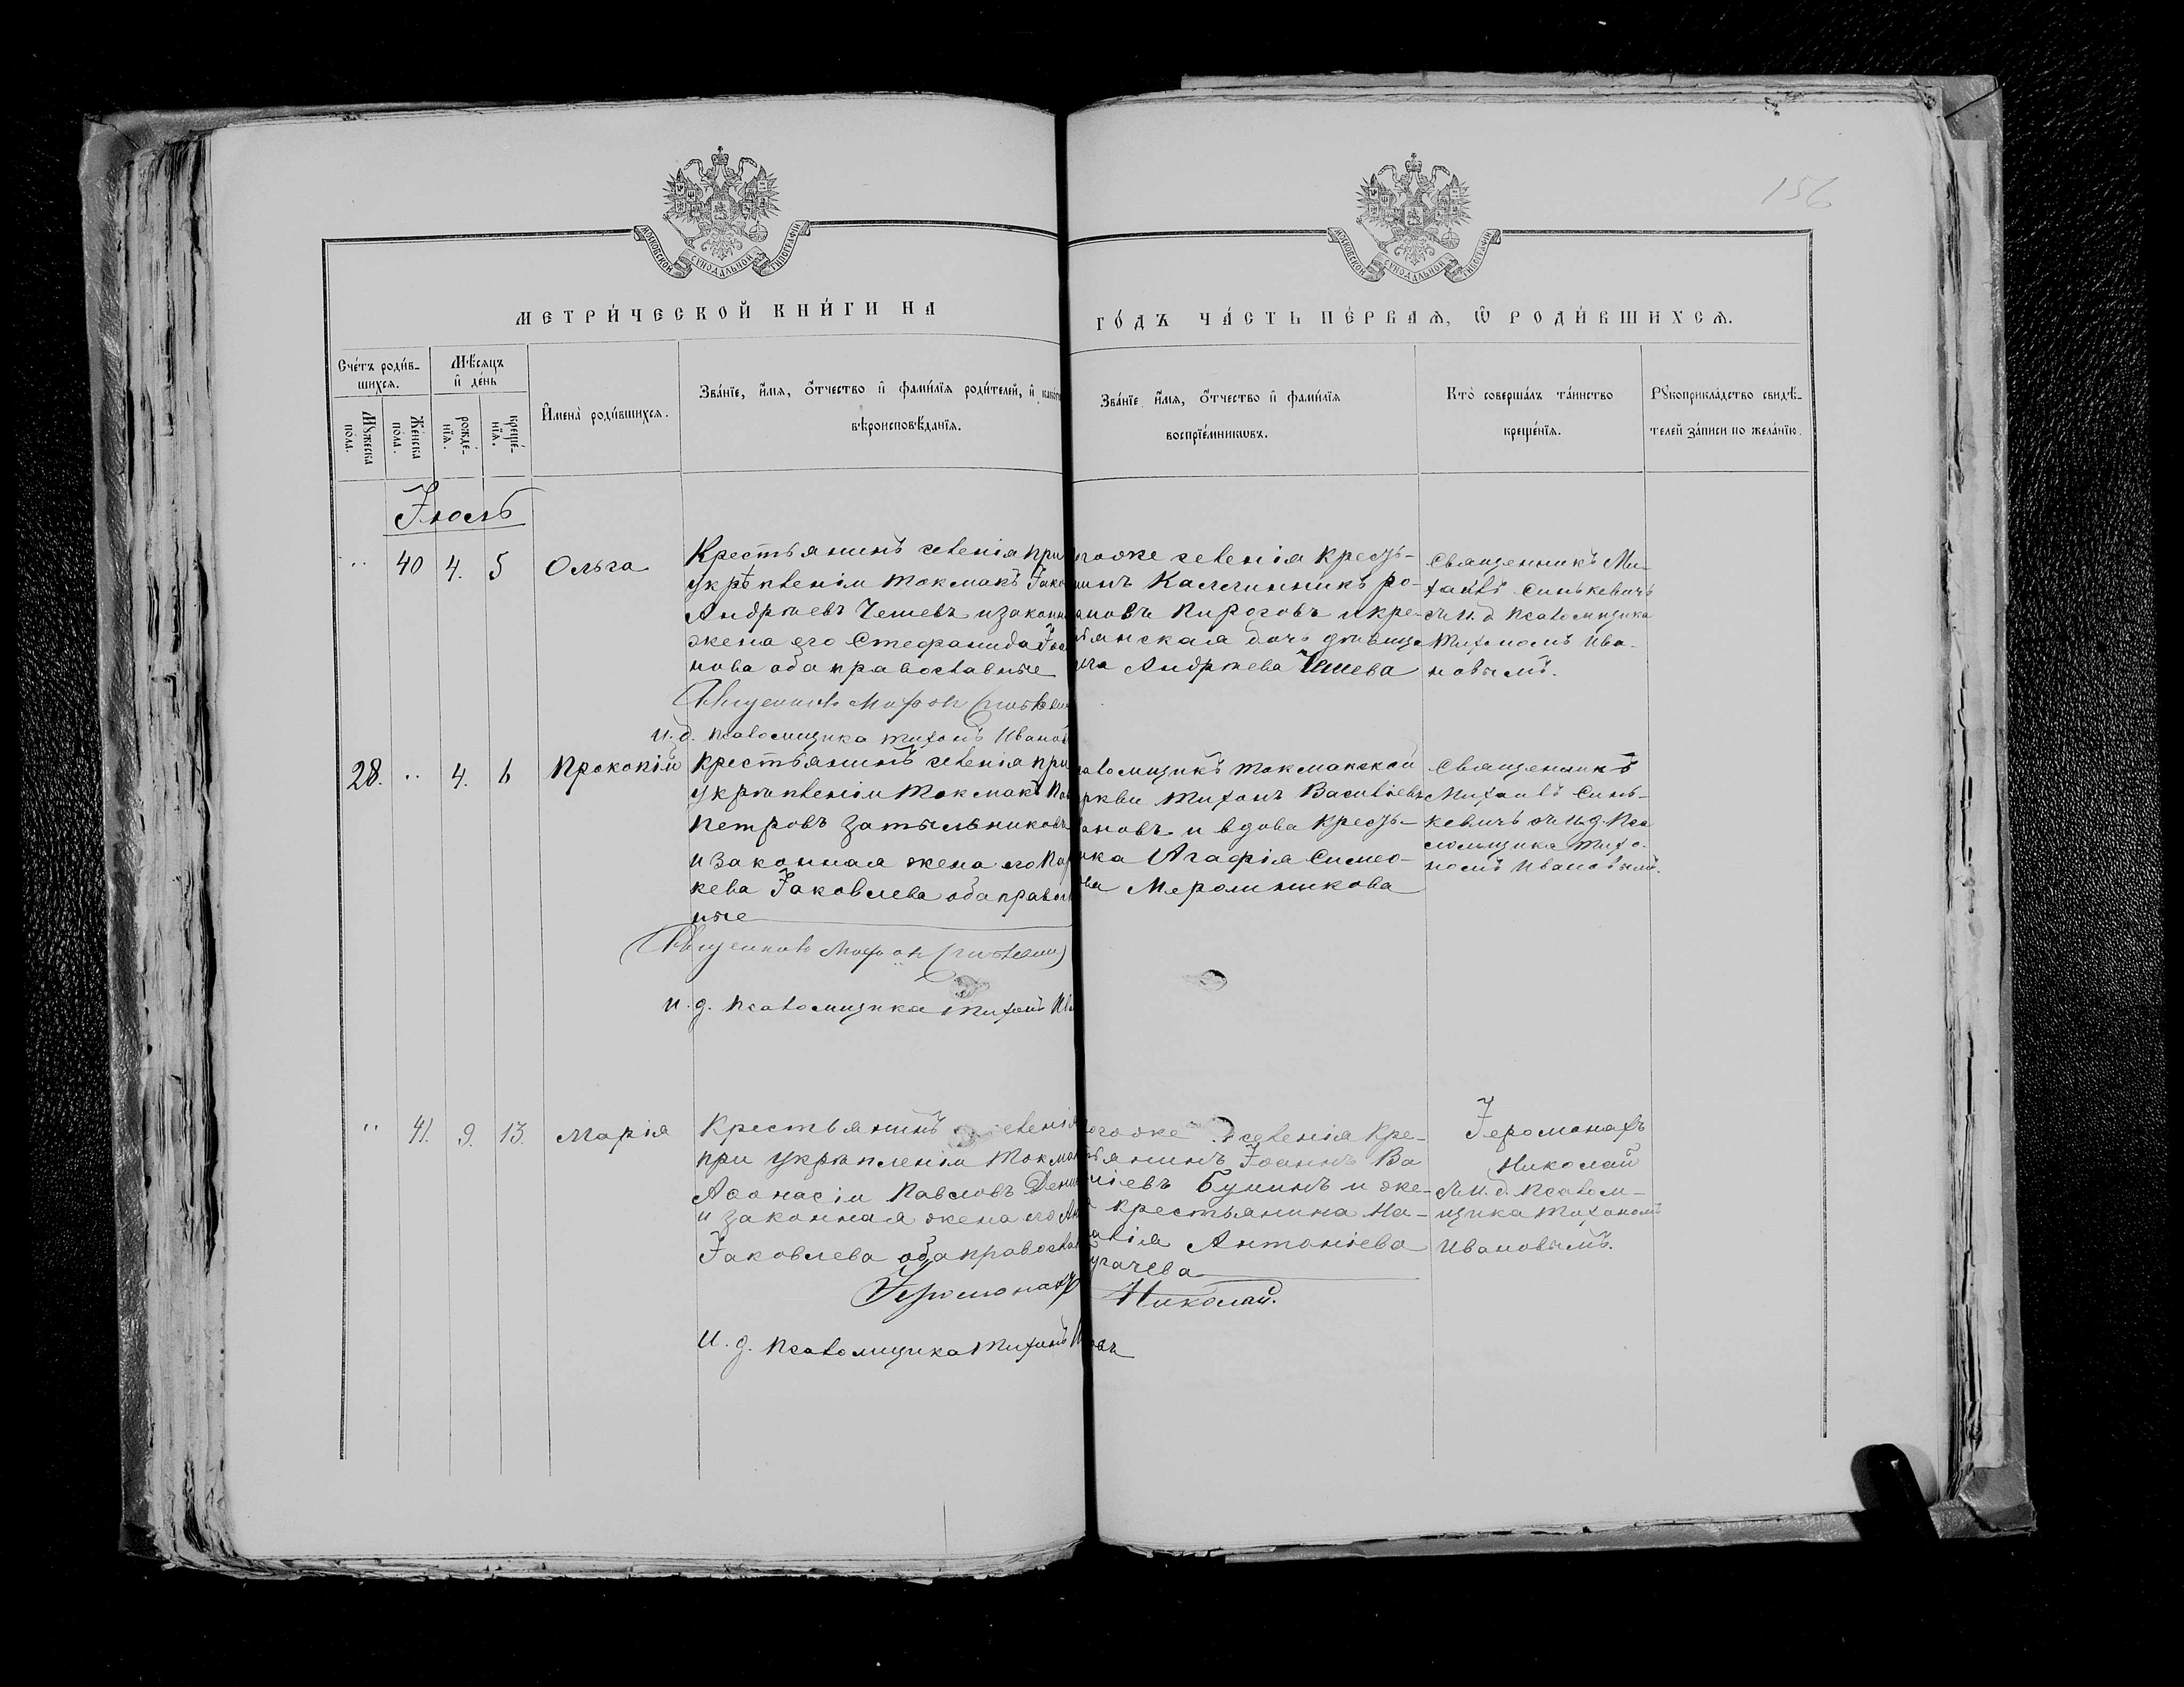 156
МОСКОВСКОЙ СѴНОДАЛЬНОЙ ТИПОГРАФІИ
МОСКОВСКОЙ СѴНОДАЛЬНОЙ ТИПОГРАФІИ
МЕТРИ́ЧЕСКОЙ КНИ́ГИ НА
ГО́ДЪ ЧА́СТЬ ПЕ́РВАѦ, Ѽ РОДИ́ВШИХСѦ.
Сче́тъ роди́в-
шихсѧ.
Мѣ́сѧцъ
и҆ де́нь
Мꙋжеска
по́ла.
Же́нска
по́ла.
рожде́-
нїѧ.
креще́-
нїѧ.
И҆мена̀ роди́вшихсѧ.
Зва́нїе, и҆́мѧ, ѻ҆́тчество и҆ фами́лїѧ роди́телей, и҆
вѣроисповѣ́данїѧ.
Зва́нїе, и҆́мѧ, ѻ҆́тчество и҆ фами́лїѧ
воспрїе́мникѡвъ.
Кто̀ соверша́лъ та́инство
креще́нїѧ.
Рꙋкоприкла́дство свидѣ́-
телей за́писи по жела́нїю.
Іюль
" 40 4. 5 Ольга
Крестьянинъ селенія при
укрѣпленіи Токмакъ
Андреевъ Чешевъ и законн
жена его Стефанида
нова оба православные
Священникъ
и. д. Псаломщика Тихонъ Иванов
тогоже селенія Кресть-
Каллинникъ Ро-
Пироговъ и кре-
дочь дѣвица
Андреева Чешева
Священникъ Ми-
хаилъ Синькевичъ
съ и. д. Псаломщика
Тихономъ Ива-
новымъ.
28. " 4. 6 Прокопій
Крестьянинъ селенія при
укрѣпленіи Токмакъ
Петровъ Затыльниковъ
и законная жена его Пар
кева Іаковлева оба правос
ные
Священникъ
и. д. Псаломщика Тихонъ Ив
Токмакской
Тихонъ Васильевъ
и вдова Кресть-
Агафія Симео-
Мерошникова
Священникъ
Михаилъ Синь-
кевичъ съ и. д. Пса
ломщика Тихо-
номъ Ивановымъ.
" 41. 9. 13. Марія
Крестьянинъ селенія
при укрѣпленіи Токмак
Аѳонасій Павловъ
и законная жена его
Іаковлева оба православ
Іеромонахъ Николай.
И. д. Псаломщика Тихонъ
тогоже селенія Кре-
Іоаннъ Ва
Бунинъ и же-
крестьянина На-
Антоніева
Іеромонахъ
Николай
съ и. д. Псалом-
щика Тихономъ
Ивановымъ.